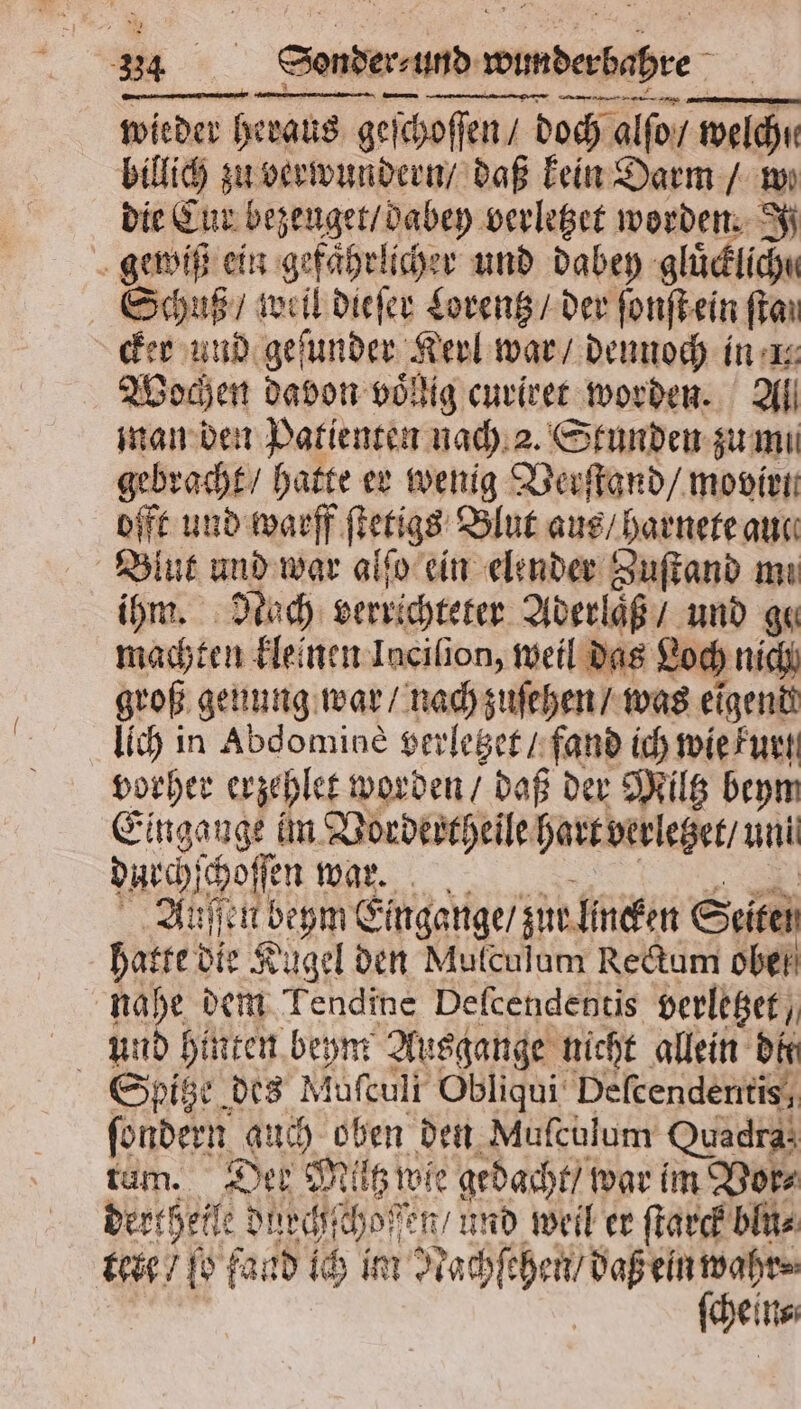 334 Sonder-und wunderbahre
wieder heraus geſchoſſen / doch alſo / welche
billich zu verwundern / daß kein Darm / wo
die Cur bezeuget / dabey verletzet worden.
gewiß ein gefaͤhrlicher und dabey gluͤckliche
Schuß / weil dieſer Lorentz / der ſonſt ein ſtar
cker und geſunder Kerl war / dennoch in
Wochen davon voͤllig curiret worden. Al
man den Patienten nach 2. Stunden zu mi
gebracht / hatte er wenig Verſtand / movirt
offt und warff ſtetigs Blut aus / harnete auc
Blut und war alſo ein elender Zuſtand mi
ihm. Nach verrichteter Aderlaͤß / und ge
machten kleinen Inciſion, weil das Loch nich
groß genung war / nach zuſehen / was eigend
lich in Abdominè verletzet / fand ich wie kurt
vorher erzehlet worden / daß der Miltz beym
Eingange im Vordertheile hart verletzet / und
durchſchoſſen war.
Auſſen beym Eingange / zur lincken Seiten
hatte die Kugel den Muſculum Rectum oben
nahe dem Tendine Deſcendentis verletzet /
und hinten beym Ausgange nicht allein die
Spitze des Muſculi Obliqui Deſcendentis,
ſondern auch oben den Muſculum Quadra-
tum. Der Miltz wie gedacht / war im Vor-
dertheile durchſchoſſen / und weil er ſtarck blu-
tete / ſo fand ich im Nachſehen / daß ein wahr-
ſchein-